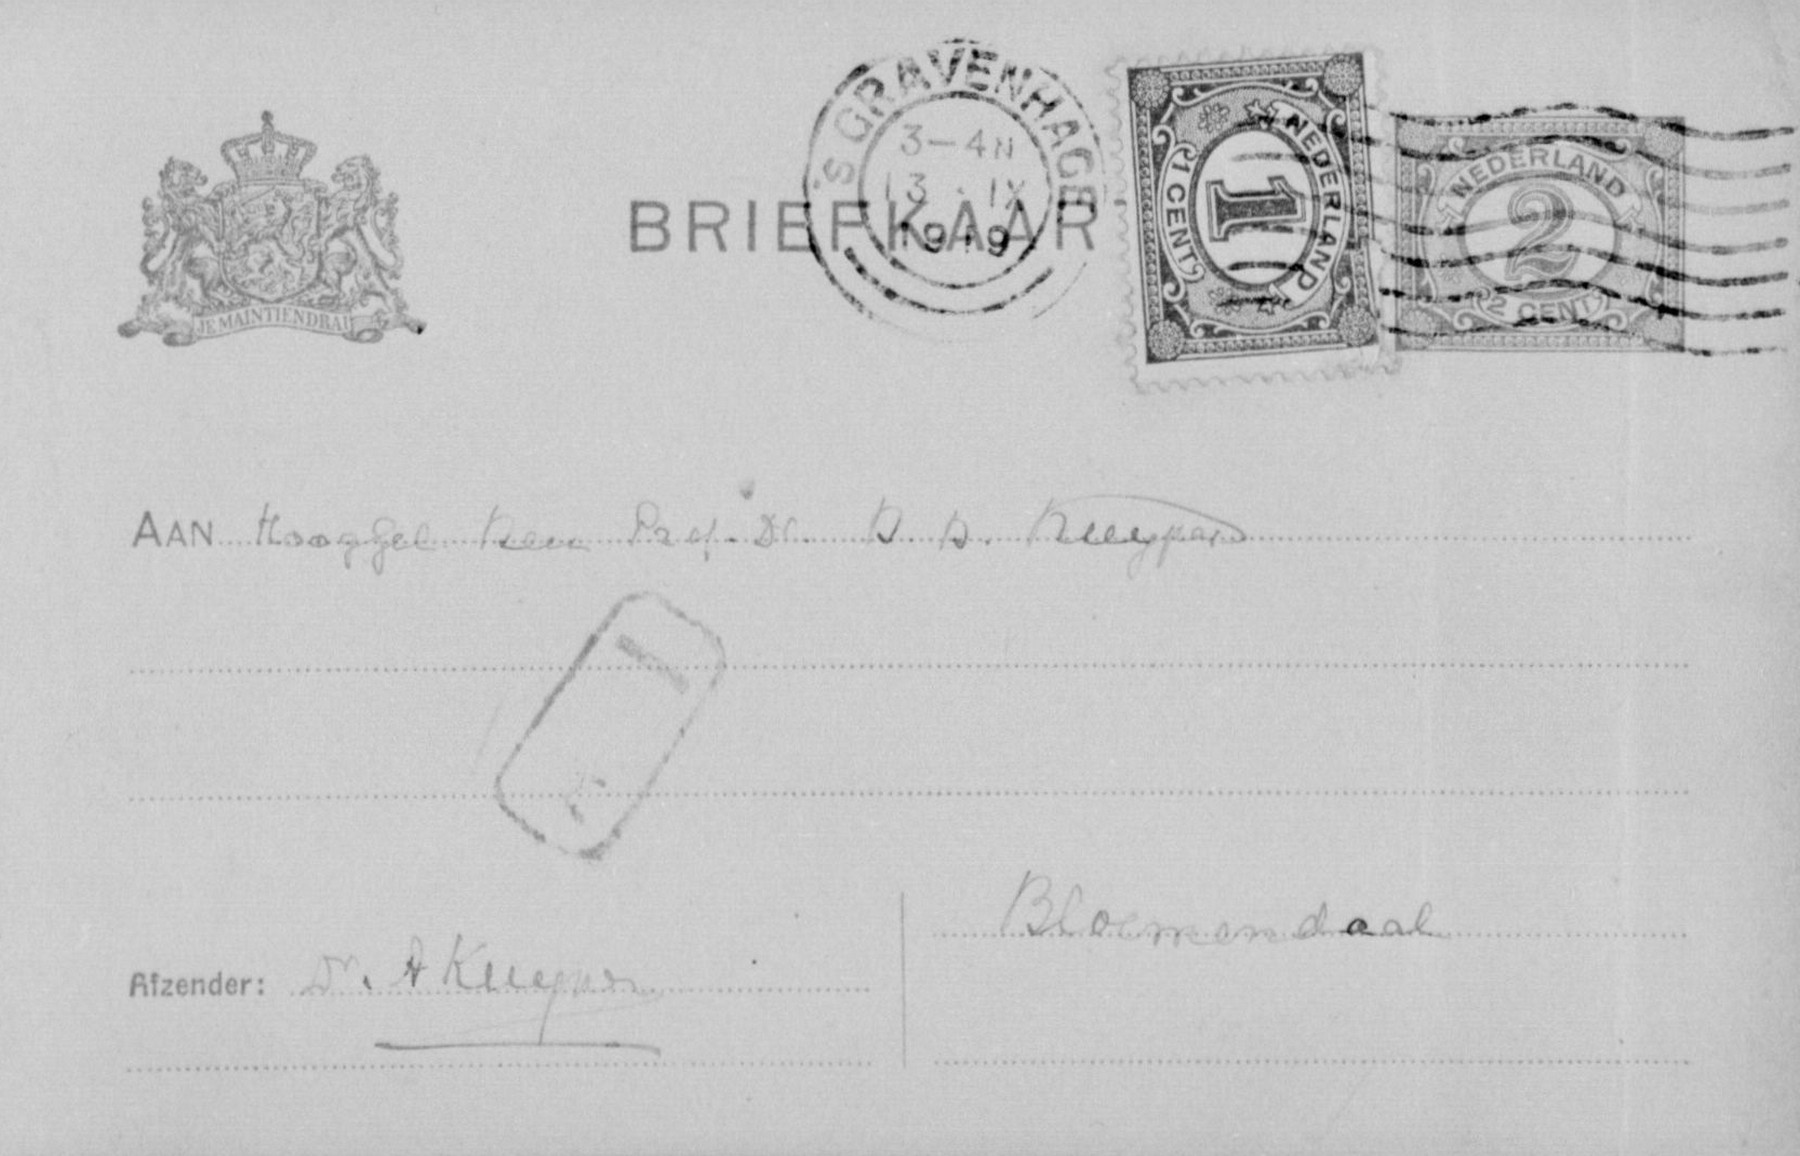 'S GRAVENHAGE
3-4N
13 · IX
1919
BRIEFKAAR
NEDERLAND
1
1 CENT
NEDERLAND
2
2 CENT
JE MAINTIENDRAI
AAN Hooggel Heer Prof. Dr. H. H. Kuyper
1
Bloemendaal
Afzender: Dr. A Kuyper